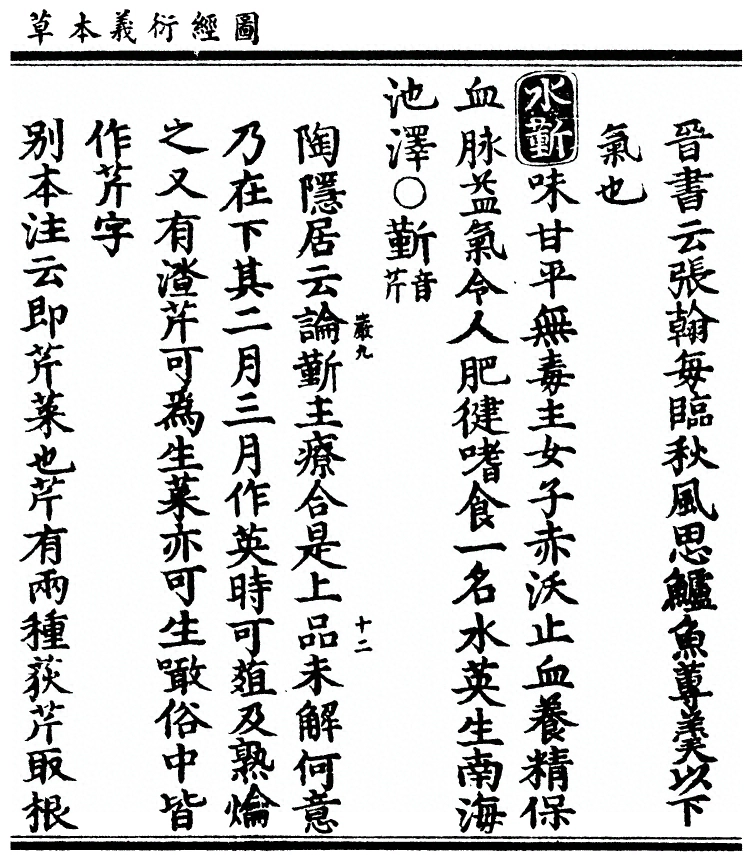 圖經衍義本草
晉書云張翰每臨秋風思鱸魚蓴羹以下
氣也
水斳味甘平無毒主女子赤沃止血養精保
血脉益氣令人肥徤嗜食一名水英生南海
池澤○斳音芹
巖九 十二
陶隱居云論斳主療合是上品未解何意
乃在下其二月三月作英時可葅及熟爚
之又有渣芹可為生菜亦可生噉俗中皆
作芹字
别本注云即芹菜也芹有兩種荻芹取根